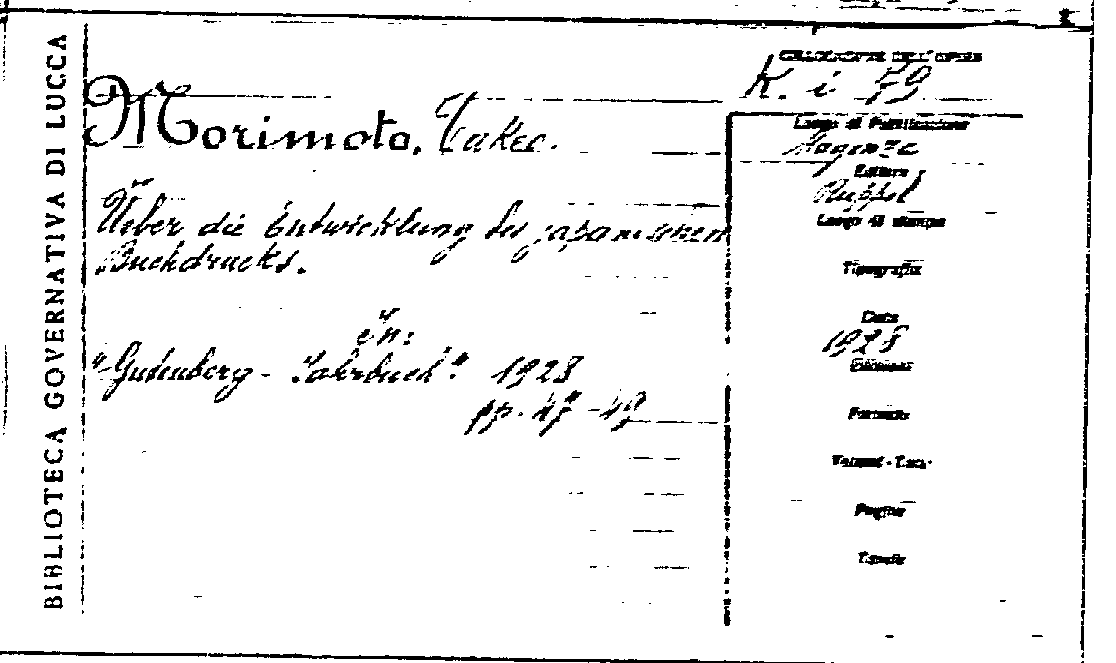 BIBLIOTECA GOVERNATIVA DI LUCCA
COLLOCAZIONE DELL'OPERA
K. i 79
Morimoto, Takeo.
Ueber die Entwicklung des japanischen
Buchdrucks.
In:
"Gutenberg - Jahrbuch". 1928
pp. 47-49
Luogo di Pubblicazione
Magenza
Editore
Ruppel
Luogo di stampa
Tipografia
Data
1928
Edizione
Formato
Volumi - Tomi
Pagine
Tavole